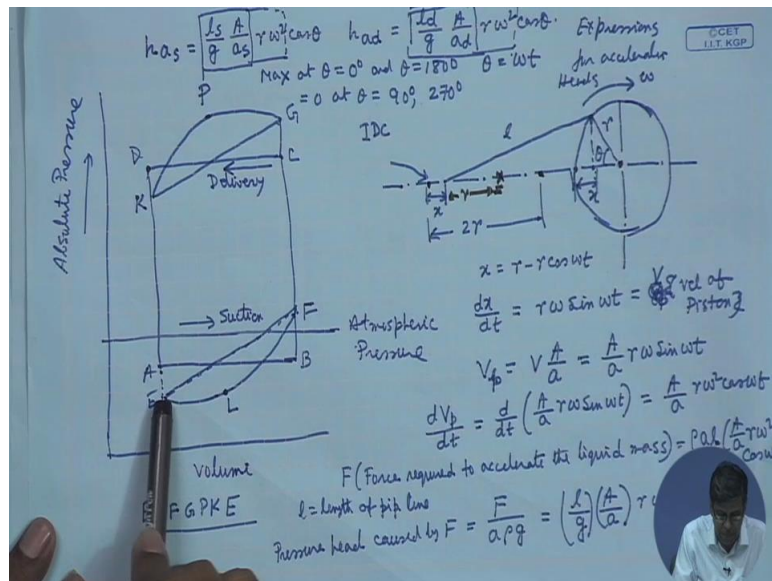 has = ls/g A/as rω² cosθ
had = ld/g A/ad rω² cosθ.
Max at θ = 0° and θ = 180° θ = ωt
= 0 at θ = 90°, 270°
Expressions
for acceleration
Heads
ω
©CET
I.I.T. KGP
Absolute Pressure
P
G
D
C
Delivery
K
Suction
F
Atmospheric
Pressure
A
B
L
Volume
FGPKE
IDC
l
r
θ
x
r
x
2r
x = r - r cos ωt
dx/dt = rω sin ωt = vel of
Piston
Vp = V A/a = A/a rω sin ωt
dVp/dt = d/dt (A/a rω sin ωt) = A/a rω² cos ωt
F (Force required to accelerate the liquid mass) = ρal (A/a rω²
cos
l = length of pipe line
Pressure head caused by F = F/aρg = (l/g)(A/a)